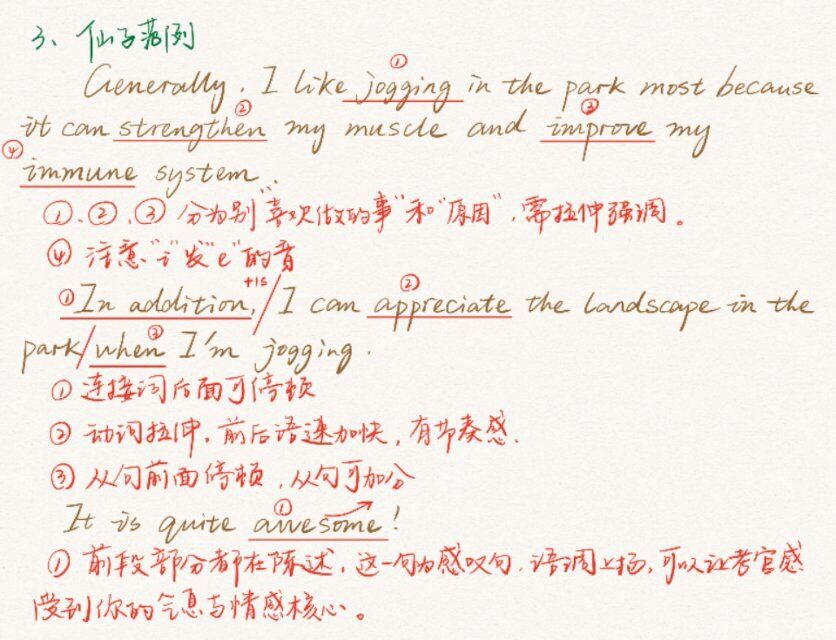 3、仙子范例
Generally, I like jogging in the park most because
it can strengthen my muscle and improve my
immune system.
①、②、③ 分为别"喜欢做的事"和"原因",需拉伸强调。
④ 注意"i"发"e"的音
In addition, / I can appreciate the landscape in the
park / when I'm jogging.
① 连接词后面可停顿
② 动词拉伸,前后语速加快,有节奏感、
③ 从句前面停顿,从句可加分
It is quite awesome!
① 前段部分都在陈述,这一句为感叹句,语调上扬,可以让考官感
受到你的气息与情感核心。